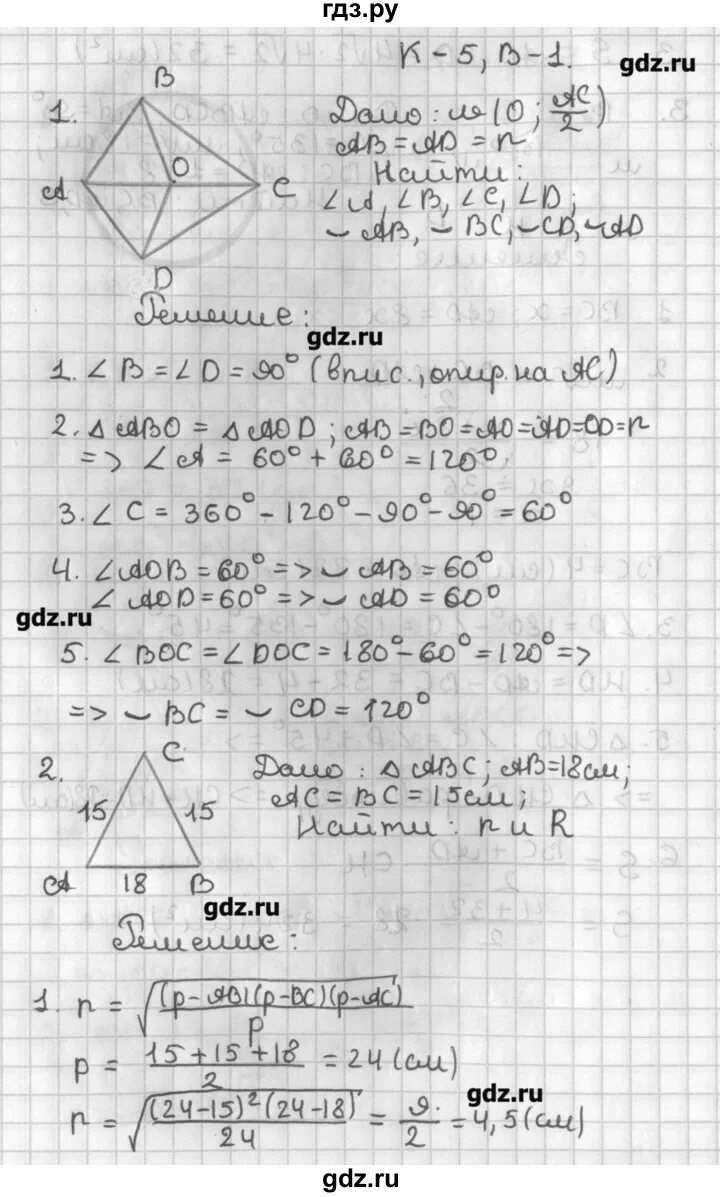 гдз.ру
К-5, В-1.
gdz.ru
B
1.
Дано: м (O; AC/2)
AB = AD = r
O
A
C
Найти:
∠A, ∠B, ∠C, ∠D;
◡AB, ◡BC, ◡CD, ◡AD
D
Решение:
gdz.ru
1. ∠B = ∠D = 90° (впис., опир. на AC)
2. △ABO = △AOD; AB = BO = AO = AD = OD = r
=> ∠A = 60° + 60° = 120°
3. ∠C = 360° - 120° - 90° - 90° = 60°
4. ∠AOB = 60° => ◡AB = 60°
∠AOD = 60° => ◡AD = 60°
gdz.ru
5. ∠BOC = ∠DOC = 180° - 60° = 120° =>
=> ◡BC = ◡CD = 120°
2.
C
Дано: △ABC; AB = 18 см;
15
15
AC = BC = 15 см;
Найти: r и R
A
18
B
gdz.ru
Решение:
1. r = √((p-AB)(p-BC)(p-AC)/p)
p = (15+15+18)/2 = 24 (см)
gdz.ru
r = √((24-15)²(24-18)/24) = 9/2 = 4,5 (см)
gdz.ru